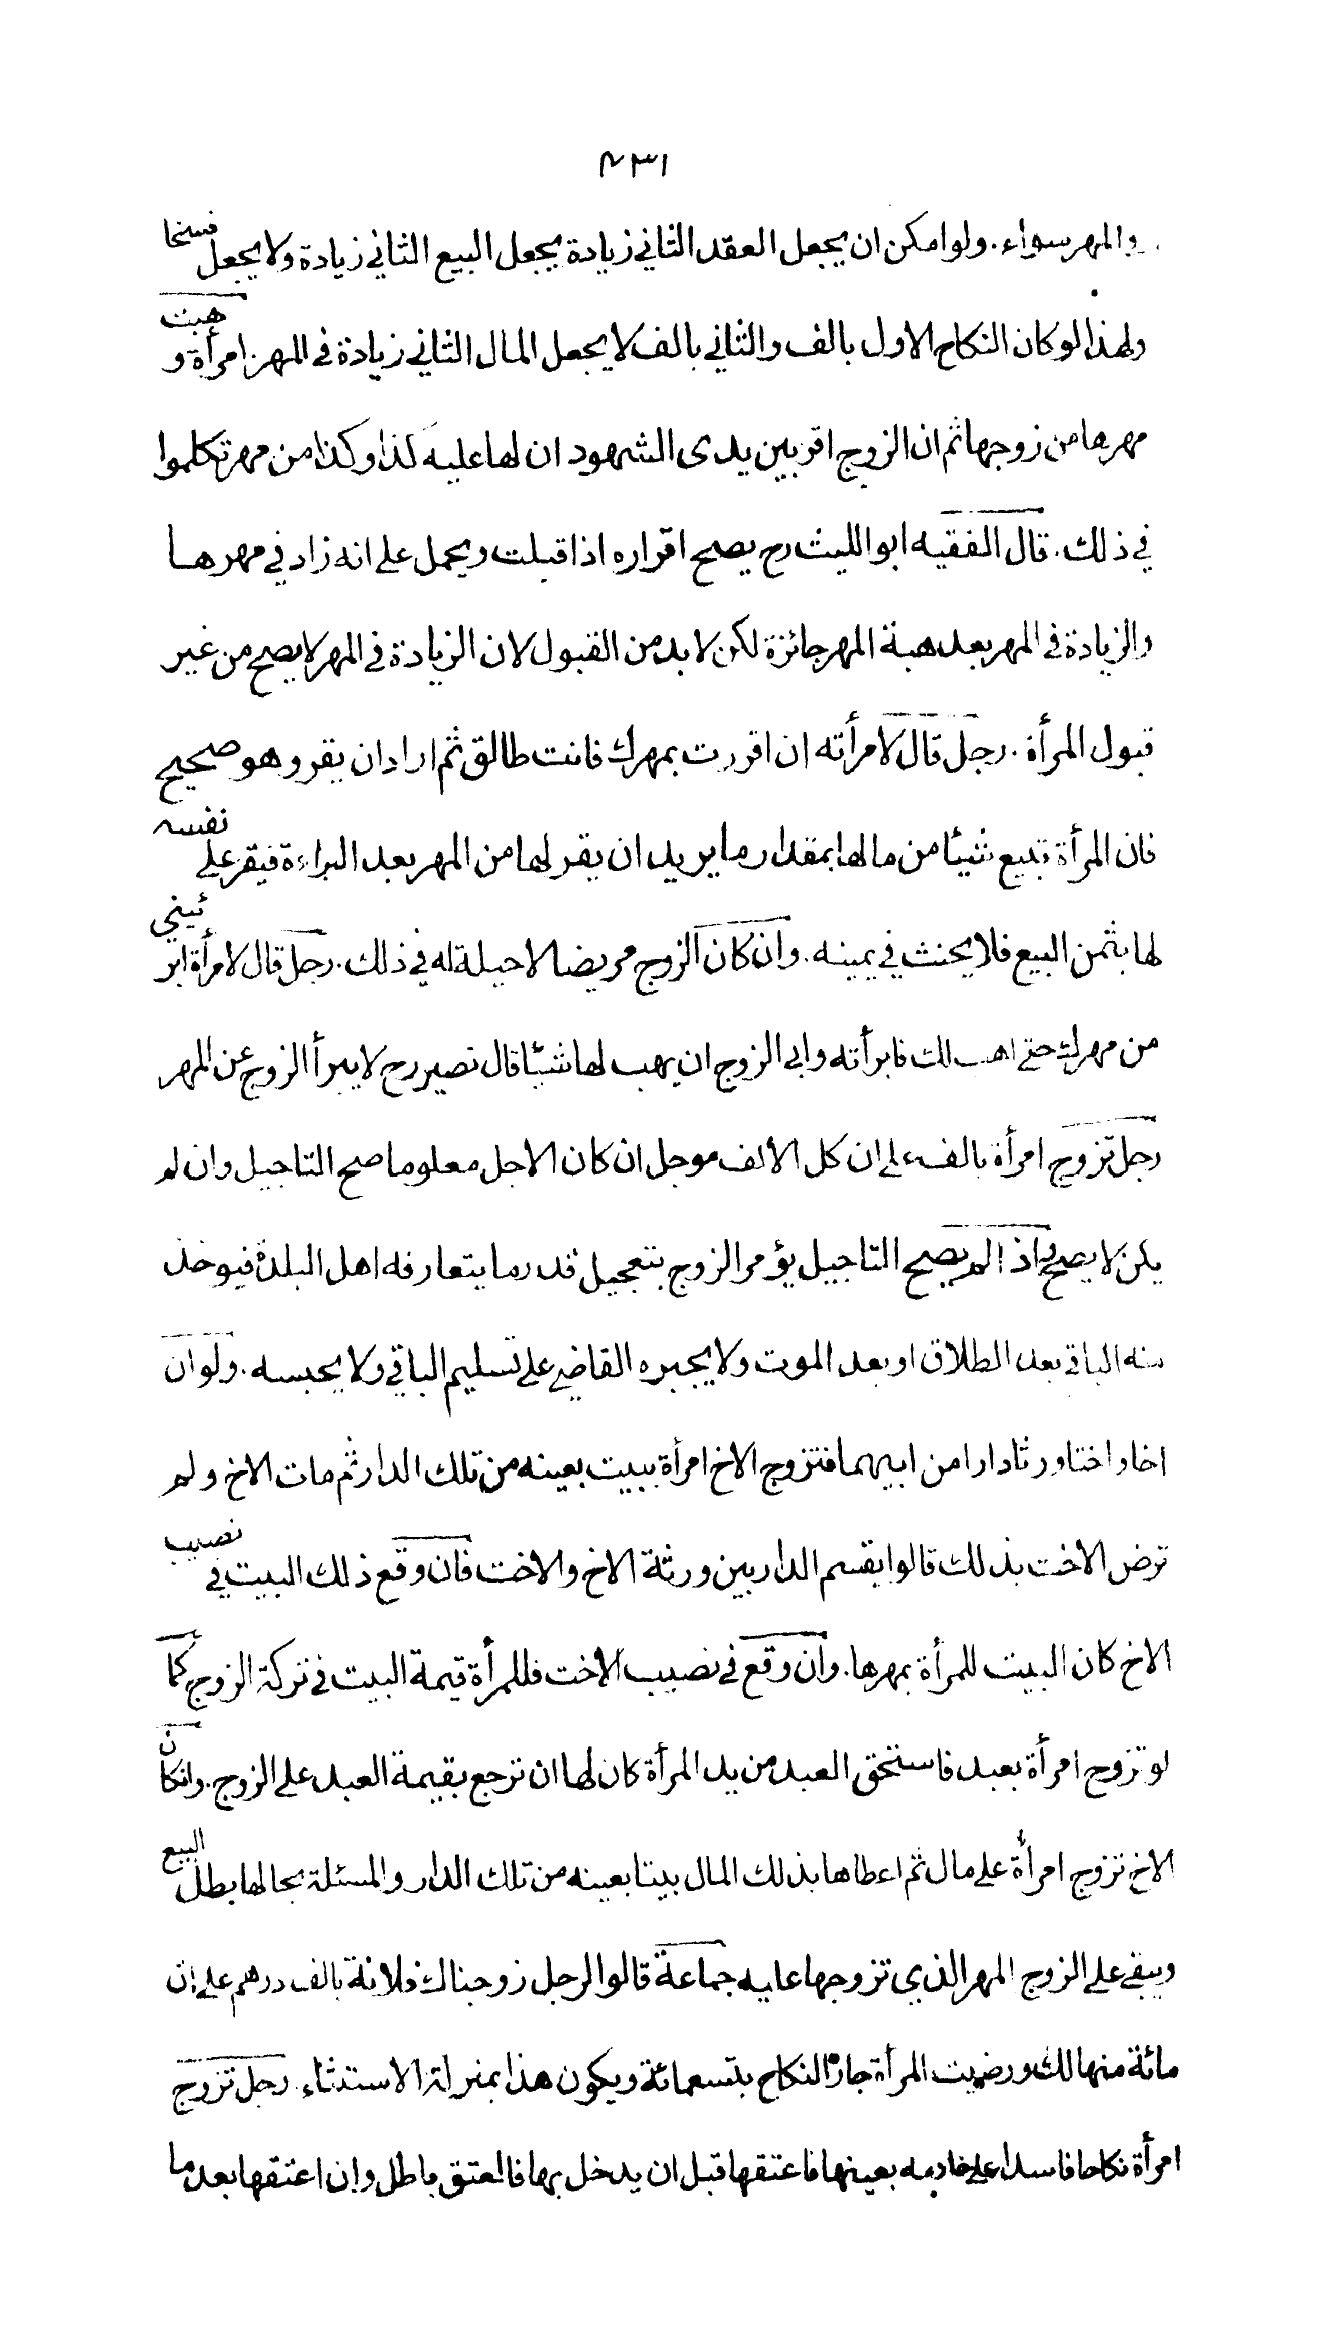 ٤٣١
والمهر سواء. ولو امكن ان يجعل العقد الثاني زيادة يجعل البيع الثاني زيادة ولا يجعل فسخا
ولهذا لو كان النكاح الاول بالف والثاني بالف لا يجعل المال الثاني زيادة في المهر. امرأة وهبت
مهرها من زوجها ثم ان الزوج اقر بين يدى الشهود ان لها عليه كذا وكذا من مهر تكلموا
في ذلك. قال الفقيه ابو الليث رح يصح اقراره اذا قبلت ويحمل على انه زاد في مهرها
والزيادة في المهر بعد هبة المهر جائزة لكن لا بد من القبول لان الزيادة في المهر لا يصح من غير
قبول المرأة. رجل قال لامرأته ان اقررت بمهرك فانت طالق ثم اراد ان يقر وهو صحيح
فان المرأة تبيع شيئا من مالها بمقدار ما يريد ان يقر لها من المهر بعد البراءة فيقر على نفسه
لها بثمن البيع فلا يحنث في يمينه. وان كان الزوج مريضا لا حيلة له في ذلك. رجل قال لامرأة ابرئيني
من مهرك حتى اهب لك فابرأته وابى الزوج ان يهب لها شيئا قال نصير رح لا يبرأ الزوج عن المهر
رجل تزوج امرأة بالف على ان كل الالف موجل ان كان الاجل معلوما صح التاجيل وان لم
يكن لا يصح واذا لم يصح التاجيل يؤمر الزوج بتعجيل قدر ما يتعارفه اهل البلدة فيوخذ
منه الباقي بعد الطلاق او بعد الموت ولا يجبره القاضي على تسليم الباقي ولا يحبسه. ولو ان
اخا واختا ورثا دارا من ابيهما فتزوج الاخ امرأة ببيت بعينه من تلك الدار ثم مات الاخ ولم
ترض الاخت بذلك قالوا يقسم الدار بين ورثة الاخ والاخت فان وقع ذلك البيت في نصيب
الاخ كان البيت للمرأة بمهرها. وان وقع في نصيب الاخت فللمرأة قيمة البيت في تركة الزوج كما
لو تزوج امرأة بعبد فاستحق العبد من يد المرأة كان لها ان ترجع بقيمة العبد على الزوج. وانكان
الاخ تزوج امرأة على مال ثم اعطاها بذلك المال بيتا بعينه من تلك الدار والمسئلة بحالها بطل البيع
ويبقى على الزوج المهر الذي تزوجها عليه جماعة قالوا لرجل زوجناك فلانة بالف درهم على ان
مائة منها لك ورضيت المرأة جاز النكاح بتسعمائة ويكون هذا بمنزلة الاستثناء. رجل تزوج
امرأة نكاحا فاسدا على خادمه بعينها فاعتقها قبل ان يدخل بها فالعتق باطل وان اعتقها بعد ما